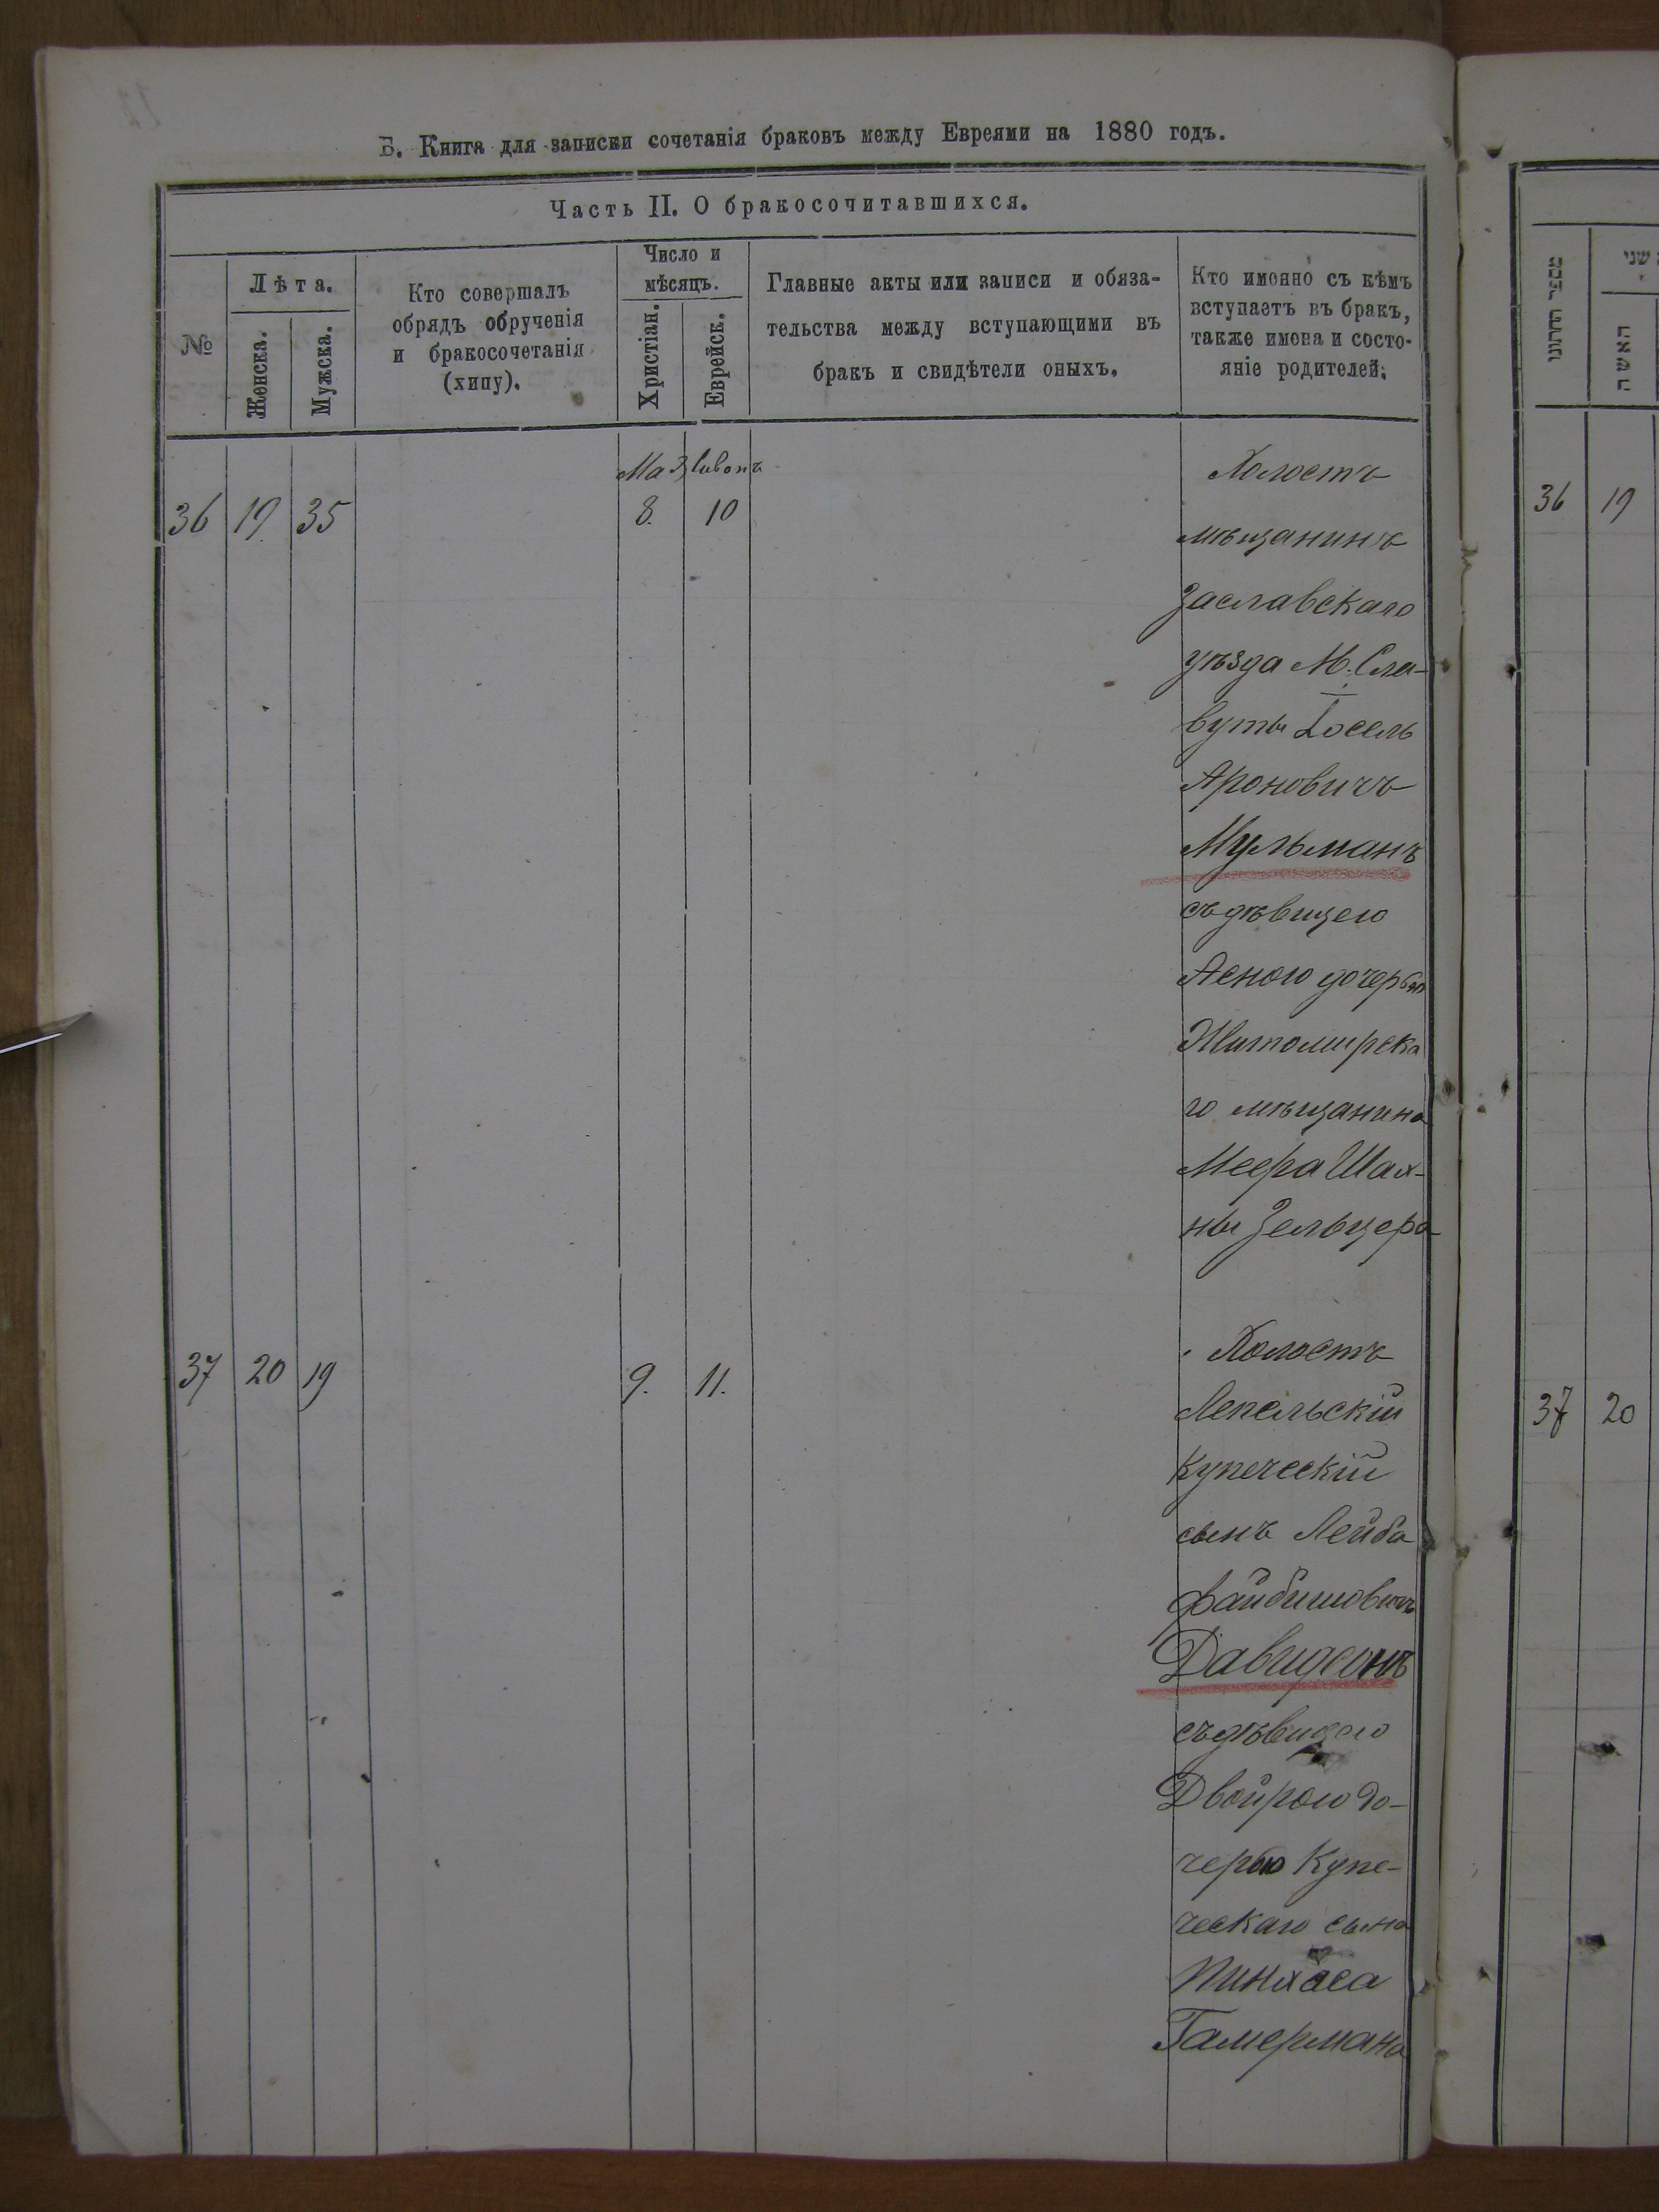 Б. Книга для записки сочетанія браковъ между Евреями на 1880 годъ.
Часть II. О бракосочитавшихся.
№
Лѣта.
Женска.
Мужска.
Кто совершалъ
обрядъ обрученія
и бракосочетанія
(хипу).
Число и
мѣсяцъ.
Христіан.
Еврейск.
Главные акты или записи и обяза-
тельства между вступающими въ
бракъ и свидѣтели оныхъ.
Кто именно съ кѣмъ
вступаетъ въ бракъ,
также имена и состо-
яніе родителей.
36 19 35 8. 10
Холостъ
мѣщанинъ
Заславскаго
уѣзда М. Сла-
вуты Іосель
Ароновичъ
Мульманъ
съ дѣвицею
Асною дочерью
Житомирска
го мѣщанина
Меера Шах-
ны Зельцера
37 20 19 9. 11.
Холостъ
Лепельскій
купеческій
сынъ Лейба
Файбишовичъ
Давидсонъ
съ дѣвицею
Двойрою до-
черью купе-
ческаго сына
Пинхаса
Гамермана
מספר החתונו
שני
האשה
36 19
37 20